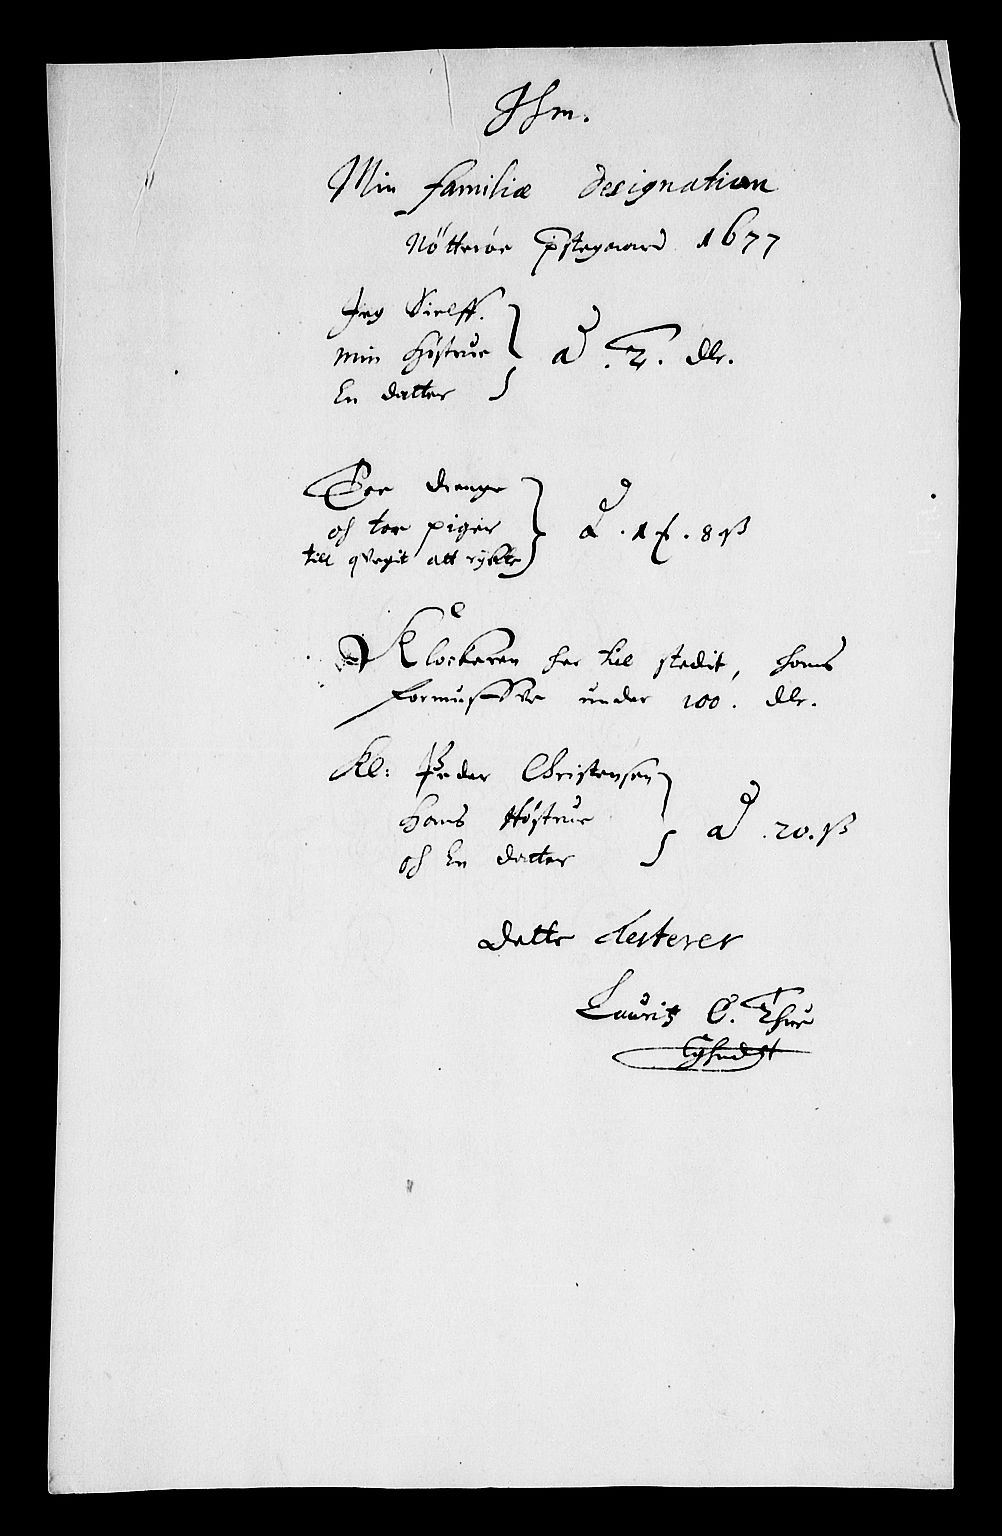 Jhm.
Min familiæ designation
Nötterøe pstegaard 1677
Jeg Sielff.
min Høstrue
En datter
a 2. dlr.
Toe drenge
och toe piger
till qvegit att rychte
a . 1 . 8 ß
Klockeren her till stedit, hans
formuffve under 100. dlr.
Kl: Peder Christensen
Hans Høstrue
och En datter
a 20. ß
Dette testerer
Lauritz C. Thue